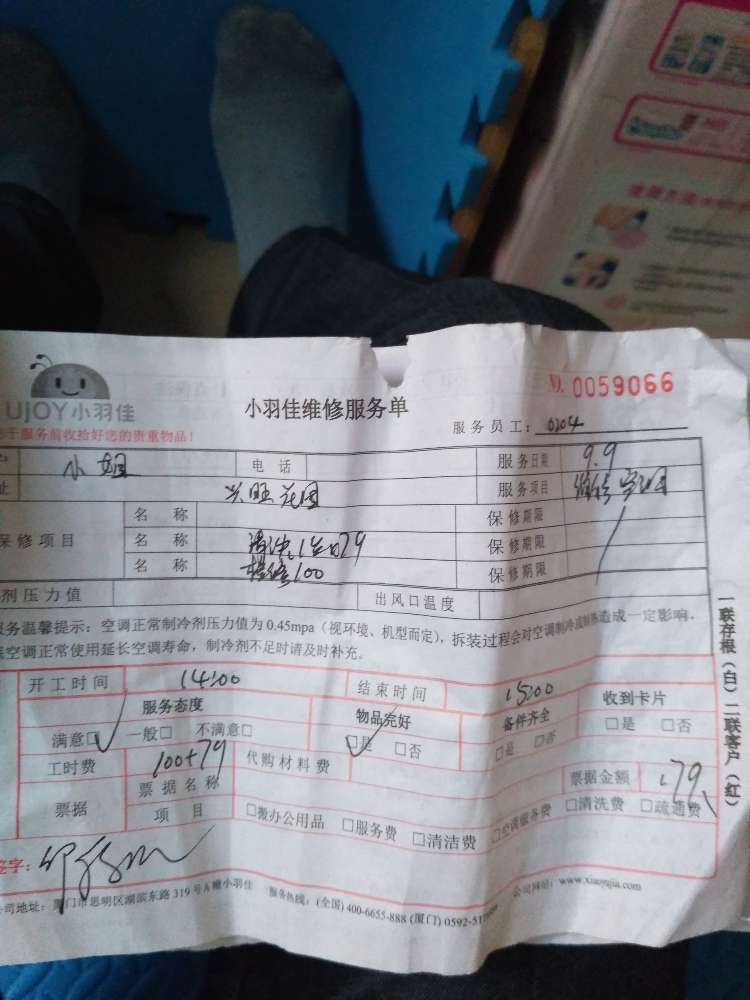 UjOY小羽佳
小羽佳维修服务单
NO. 0059066
于服务前收拾好您的贵重物品!
服务员工: 0204
小姐
电话
服务日期 9.9
址
兴旺花园
服务项目 维修空调
保修项目
名称
保修期限
名称 清洗1台79
保修期限
名称 检修100
保修期限
剂压力值
出风口温度
服务温馨提示:空调正常制冷剂压力值为 0.45mpa(视环境、机型而定),拆装过程会对空调制冷或制热造成一定影响,
空调正常使用延长空调寿命,制冷剂不足时请及时补充。
开工时间 14:00
结束时间 15:00
收到卡片
服务态度
物品完好
备件齐全
满意□ 一般□ 不满意□
□是 □否
□是 □否
□是 □否
工时费 100+79
代购材料费
票据金额 179
票据
票据名称
项目
□搬办公用品 □服务费 □清洁费 □空调服务费 □清洗费 □疏通费
签字:
公司地址:厦门市思明区湖滨东路 319 号 A 幢小羽佳 服务热线:(全国) 400-6655-888 (厦门) 0592-51 公司网站:www.xiaoyujia.com
一联存根(白)二联客户(红)